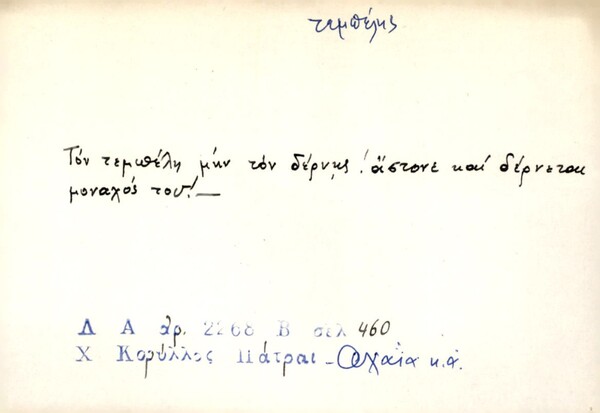 τεμπέλης
Τόν τεμπέλη μήν τόν δέρνῃς! ἄστονε καί δέρνεται
μοναχός του!—
Λ Α ἀρ. 2268 Β σελ 460
Χ Κορύλλος Πάτραι - Ἀχαΐα κ.ἀ.